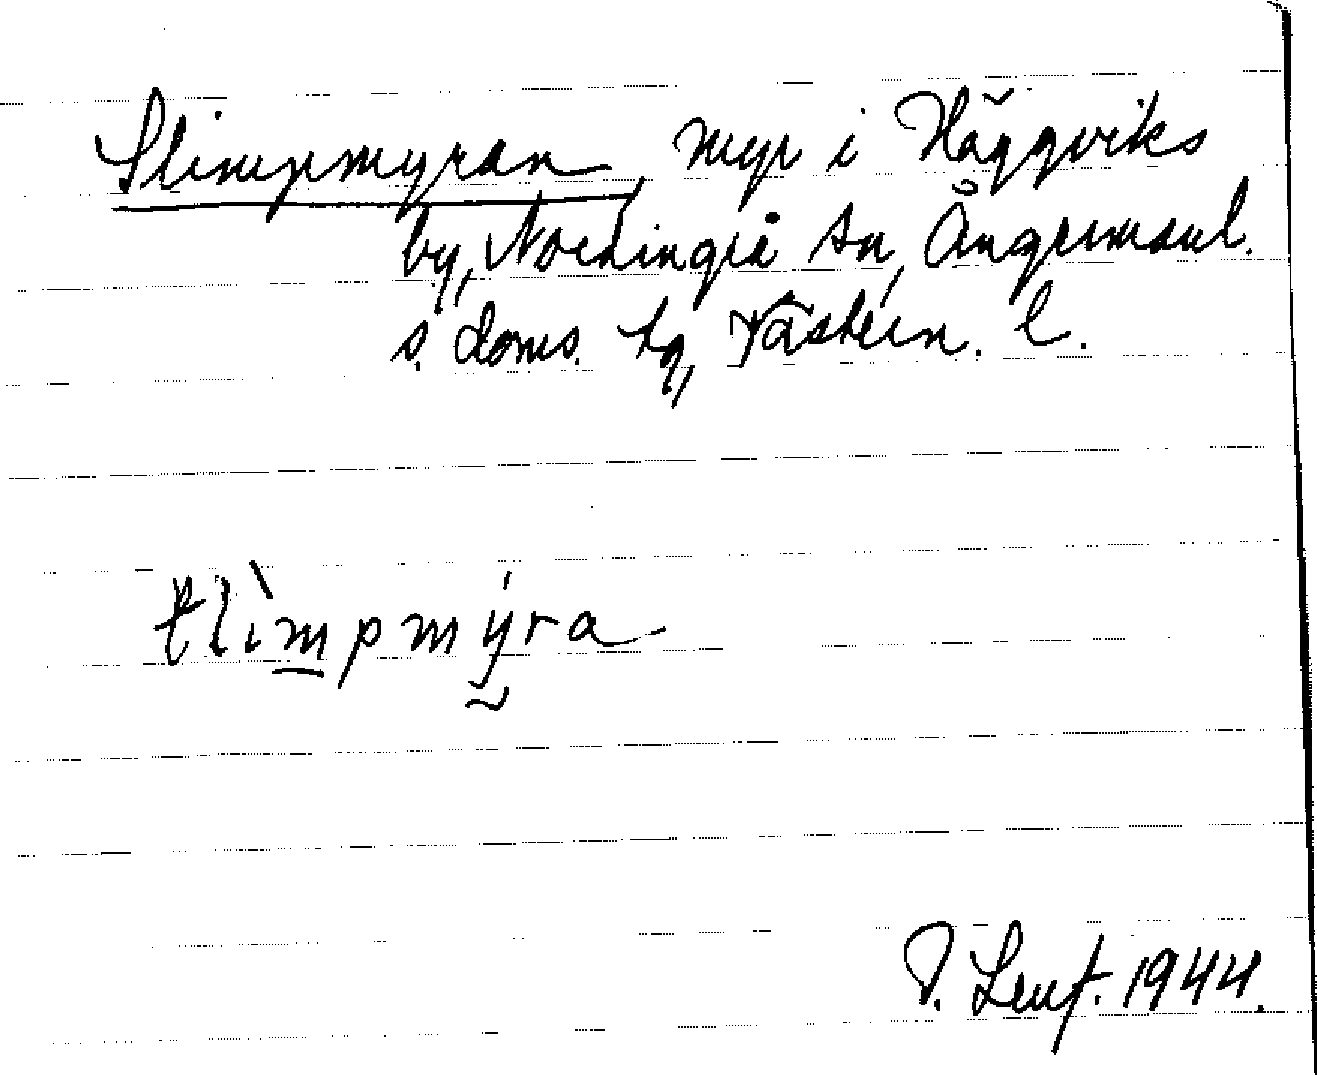 Slimpmyran, myr i Häggviks
by, Nordingrå sn, Ångermanl.
s. doms. tg, Västern. l.
ƚlìmpmýra
P. Lenf. 1944.